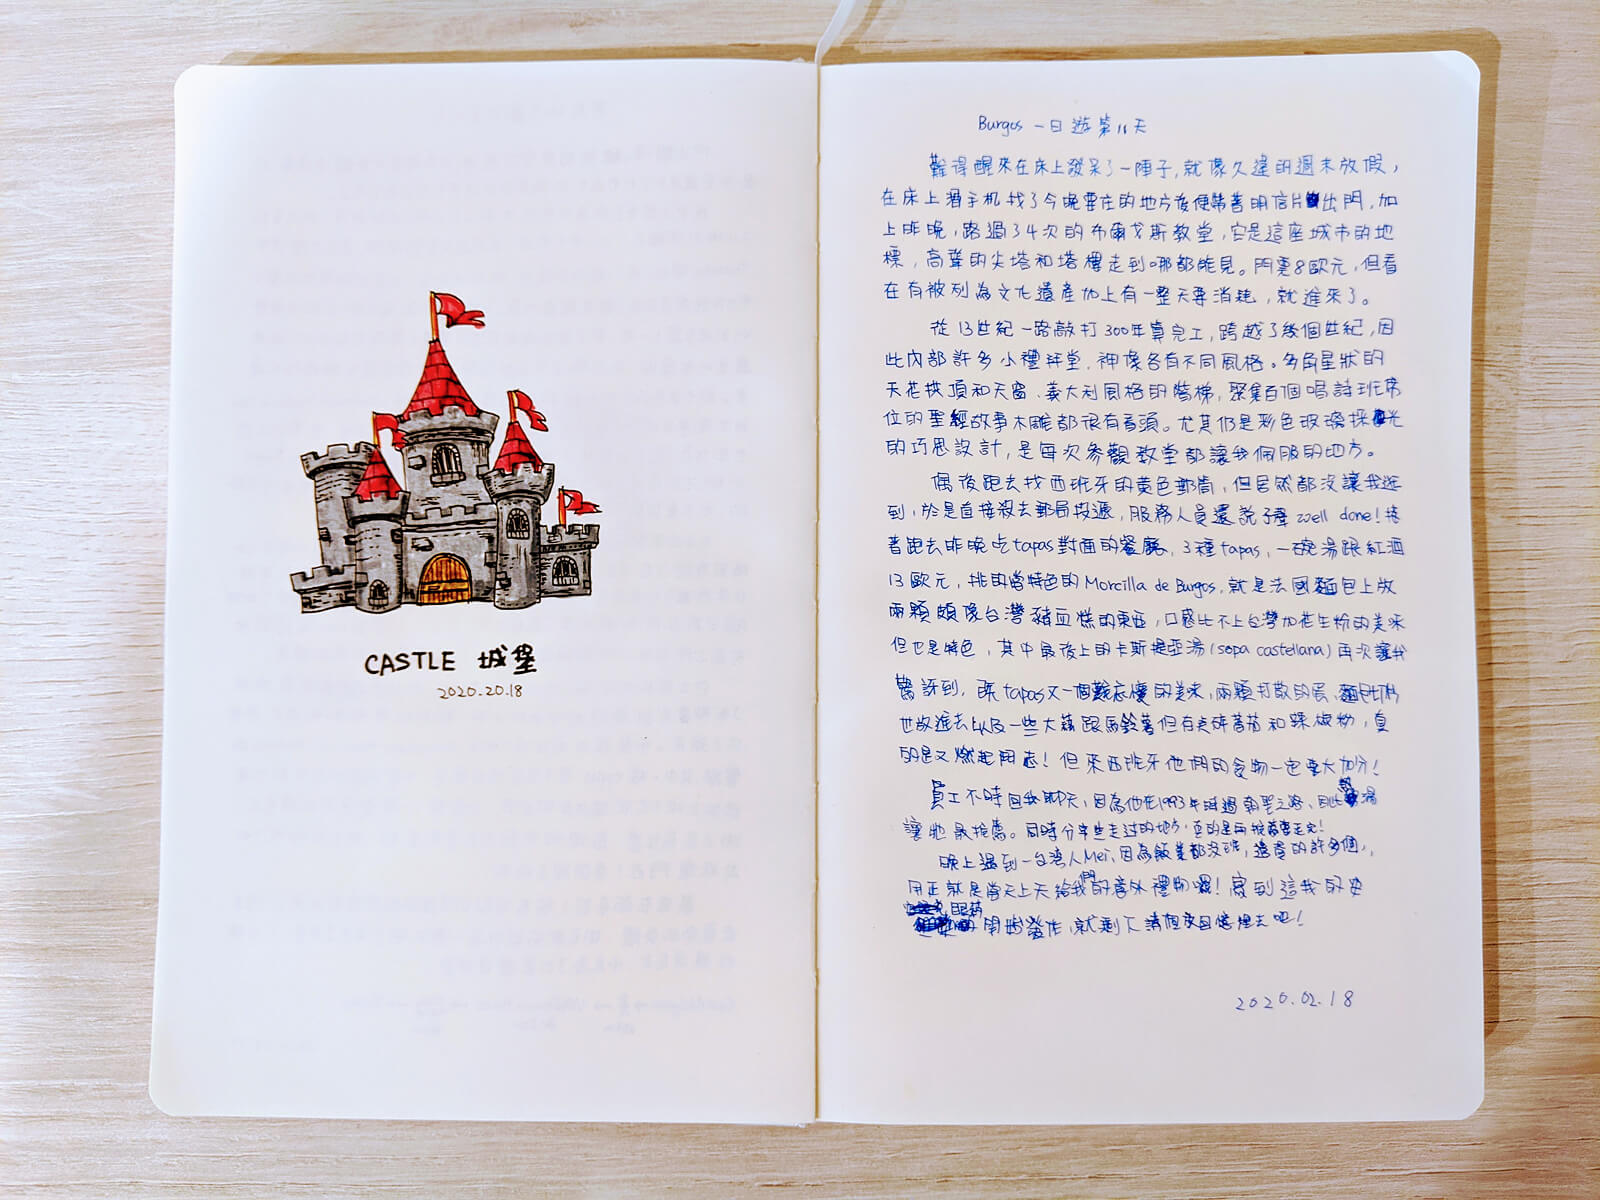 CASTLE 城堡
2020.20.18
Burgos 一日遊第11天
難得醒來在床上發呆了一陣子,就像久違的週末放假,
在床上滑手机找了今晚要住的地方後便帶著明信片出門,加
上昨晚,路過了4次的布爾戈斯教堂,它是這座城市的地
標,高聳的尖塔和塔樓走到哪都能見。門票8歐元,但看
在有被列為文化遺產加上有一整天要消耗,就進來了。
從13世紀一路敲打300年算完工,跨越了幾個世紀,因
此內部許多小禮拜堂,神像各有不同風格。多角星狀的
天花拱頂和天窗、義大利風格的階梯,聚集百個唱詩班席
位的聖經故事木雕都很有看頭。尤其仍是彩色玻璃採光
的巧思設計,是每次參觀教堂都讓我佩服的地方。
偶後跑去找西班牙的黃色郵筒,但居然都沒讓我逛
到,於是直接殺去郵局投遞,服務人員還說了聲 well done!接
著跑去昨晚吃tapas對面的餐廳,3種tapas,一碗湯跟紅酒
13歐元,挑的當特色的Morcilla de Burgos,就是法國麵包上放
兩顆頗像台灣豬血糕的東西,口感比不上台灣加花生粉的美味
但也是特色,其中最後上的卡斯提亞湯(sopa castellana)再次讓我
驚訝到,既tapas又一個難忘懷的美味,兩顆打散的蛋、麵包
也放進去以及一些大蒜跟馬鈴薯但有点碎蕃茄和辣椒粉,真
的是又燃起鬥志!但來西班牙他們的食物一定要大加分!
員工不時回我聊天,因為他在1993年時過朝聖之路,因此熱湯
讓他最推薦。同時分享些走過的地方,真的是再
晚上遇到一台灣人Mei,因為飯菜都沒吃,還貴的許多個,
用正就是當天上天給我們的意外禮物喔!寫到這我的
眼前開始發作,就剩下請
2020.02.18